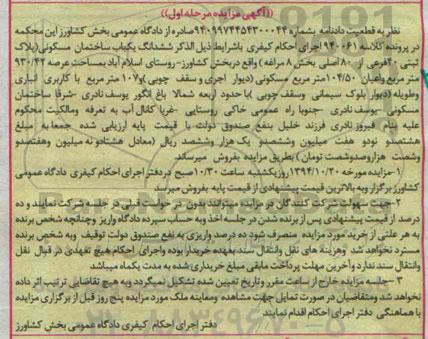 ((آگهی مزایده مرحله اول))
نظر به قطعیت دادنامه بشماره ۹۴۰۹۹۷۴۴۵۴۳۰۰۰۴۴ صادره از دادگاه عمومی بخش کشاورز این محکمه
در پرونده کلاسه ۹۴۰۰۶۱ اجرای احکام کیفری باشرایط ذیل الذکر ششدانگ یکباب ساختمان مسکونی (پلاک
ثبتی ۲۰ فرعی از ۸۰ اصلی بخش ۸ مراغه) واقع در بخش کشاورز-روستای اسلام آباد بمساحت عرصه ۹۳۰/۴۲
متر مربع واعیان ۱۰۴/۵۰ متر مربع مسکونی (دیوار اجری وسقف چوبی) و ۱۰۷ متر مربع با کاربری انباری
وطویله (دیوار بلوک سیمانی وسقف چوبی) باحدود اربعه شمالا باغ انگور یوسف نادری -شرقا ساختمان
مسکونی -یوسف نادری -جنوبا راه عمومی خاکی روستایی -غربا کانال آب به تعرفه ومالکیت محکوم
علیه بنام فیروز نادری فرزند خلیل بنفع صندوق دولت با قیمت پایه ارزیابی شده جمعا به مبلغ
هشتصدو نودو هفت میلیون وششصدو یک هزار وششصد ریال (معادل هشتادو نه میلیون وهفتصدو
وشصت هزاروصدوشصت تومان) بطریق مزایده بفروش میرساند.
۱-مزایده مورخه ۱۳۹۴/۱۰/۲۰ روز یکشنبه ساعت ۱۰/۳۰ صبح در دفتر اجرای احکام کیفری دادگاه عمومی
کشاورز برگزار وبه بالاترین قیمت پیشنهادی از قیمت پایه بفروش میرسد
۲-جهت سهولت شرکت کنندگان در مزایده میتوانند بدون در خواست قبلی در جلسه شرکت نمایند و ده
درصد از قیمت پیشنهادی پس از برنده شدن در جلسه اخذ وبه حساب سپرده دادگاه واریز وچنانچه شخص برنده
به هر علتی از خرید مورد مزایده منصرف شود ده درصد واریزی به نفع صندوق دولت توقیف وبه شخص برنده
مسترد نخواهد شد وهزینه های نقل وانتقال سند بعهده خریدار بوده واجرای احکام هیچ تعهدی در قبال نقل
وانتقال سند ندارد وآخرین مهلت پرداخت مابقی مبلغ خریداری شده به مدت یکماه میباشد
۳- جلسه مزایده خارج از ساعت مقرر وتاریخ تعیین شده تشکیل نمیگردد وبه هیچ تقاضایی ترتیب اثر داده
نخواهد شد ومتقاضیان در صورت تمایل جهت مشاهده ومعاینه ملک مورد مزایده پنج روز قبل از برگزاری مزایده
با هماهنگی دفتر اجرای احکام اقدام نمایند.
دفتر اجرای احکام کیفری دادگاه عمومی بخش کشاورز